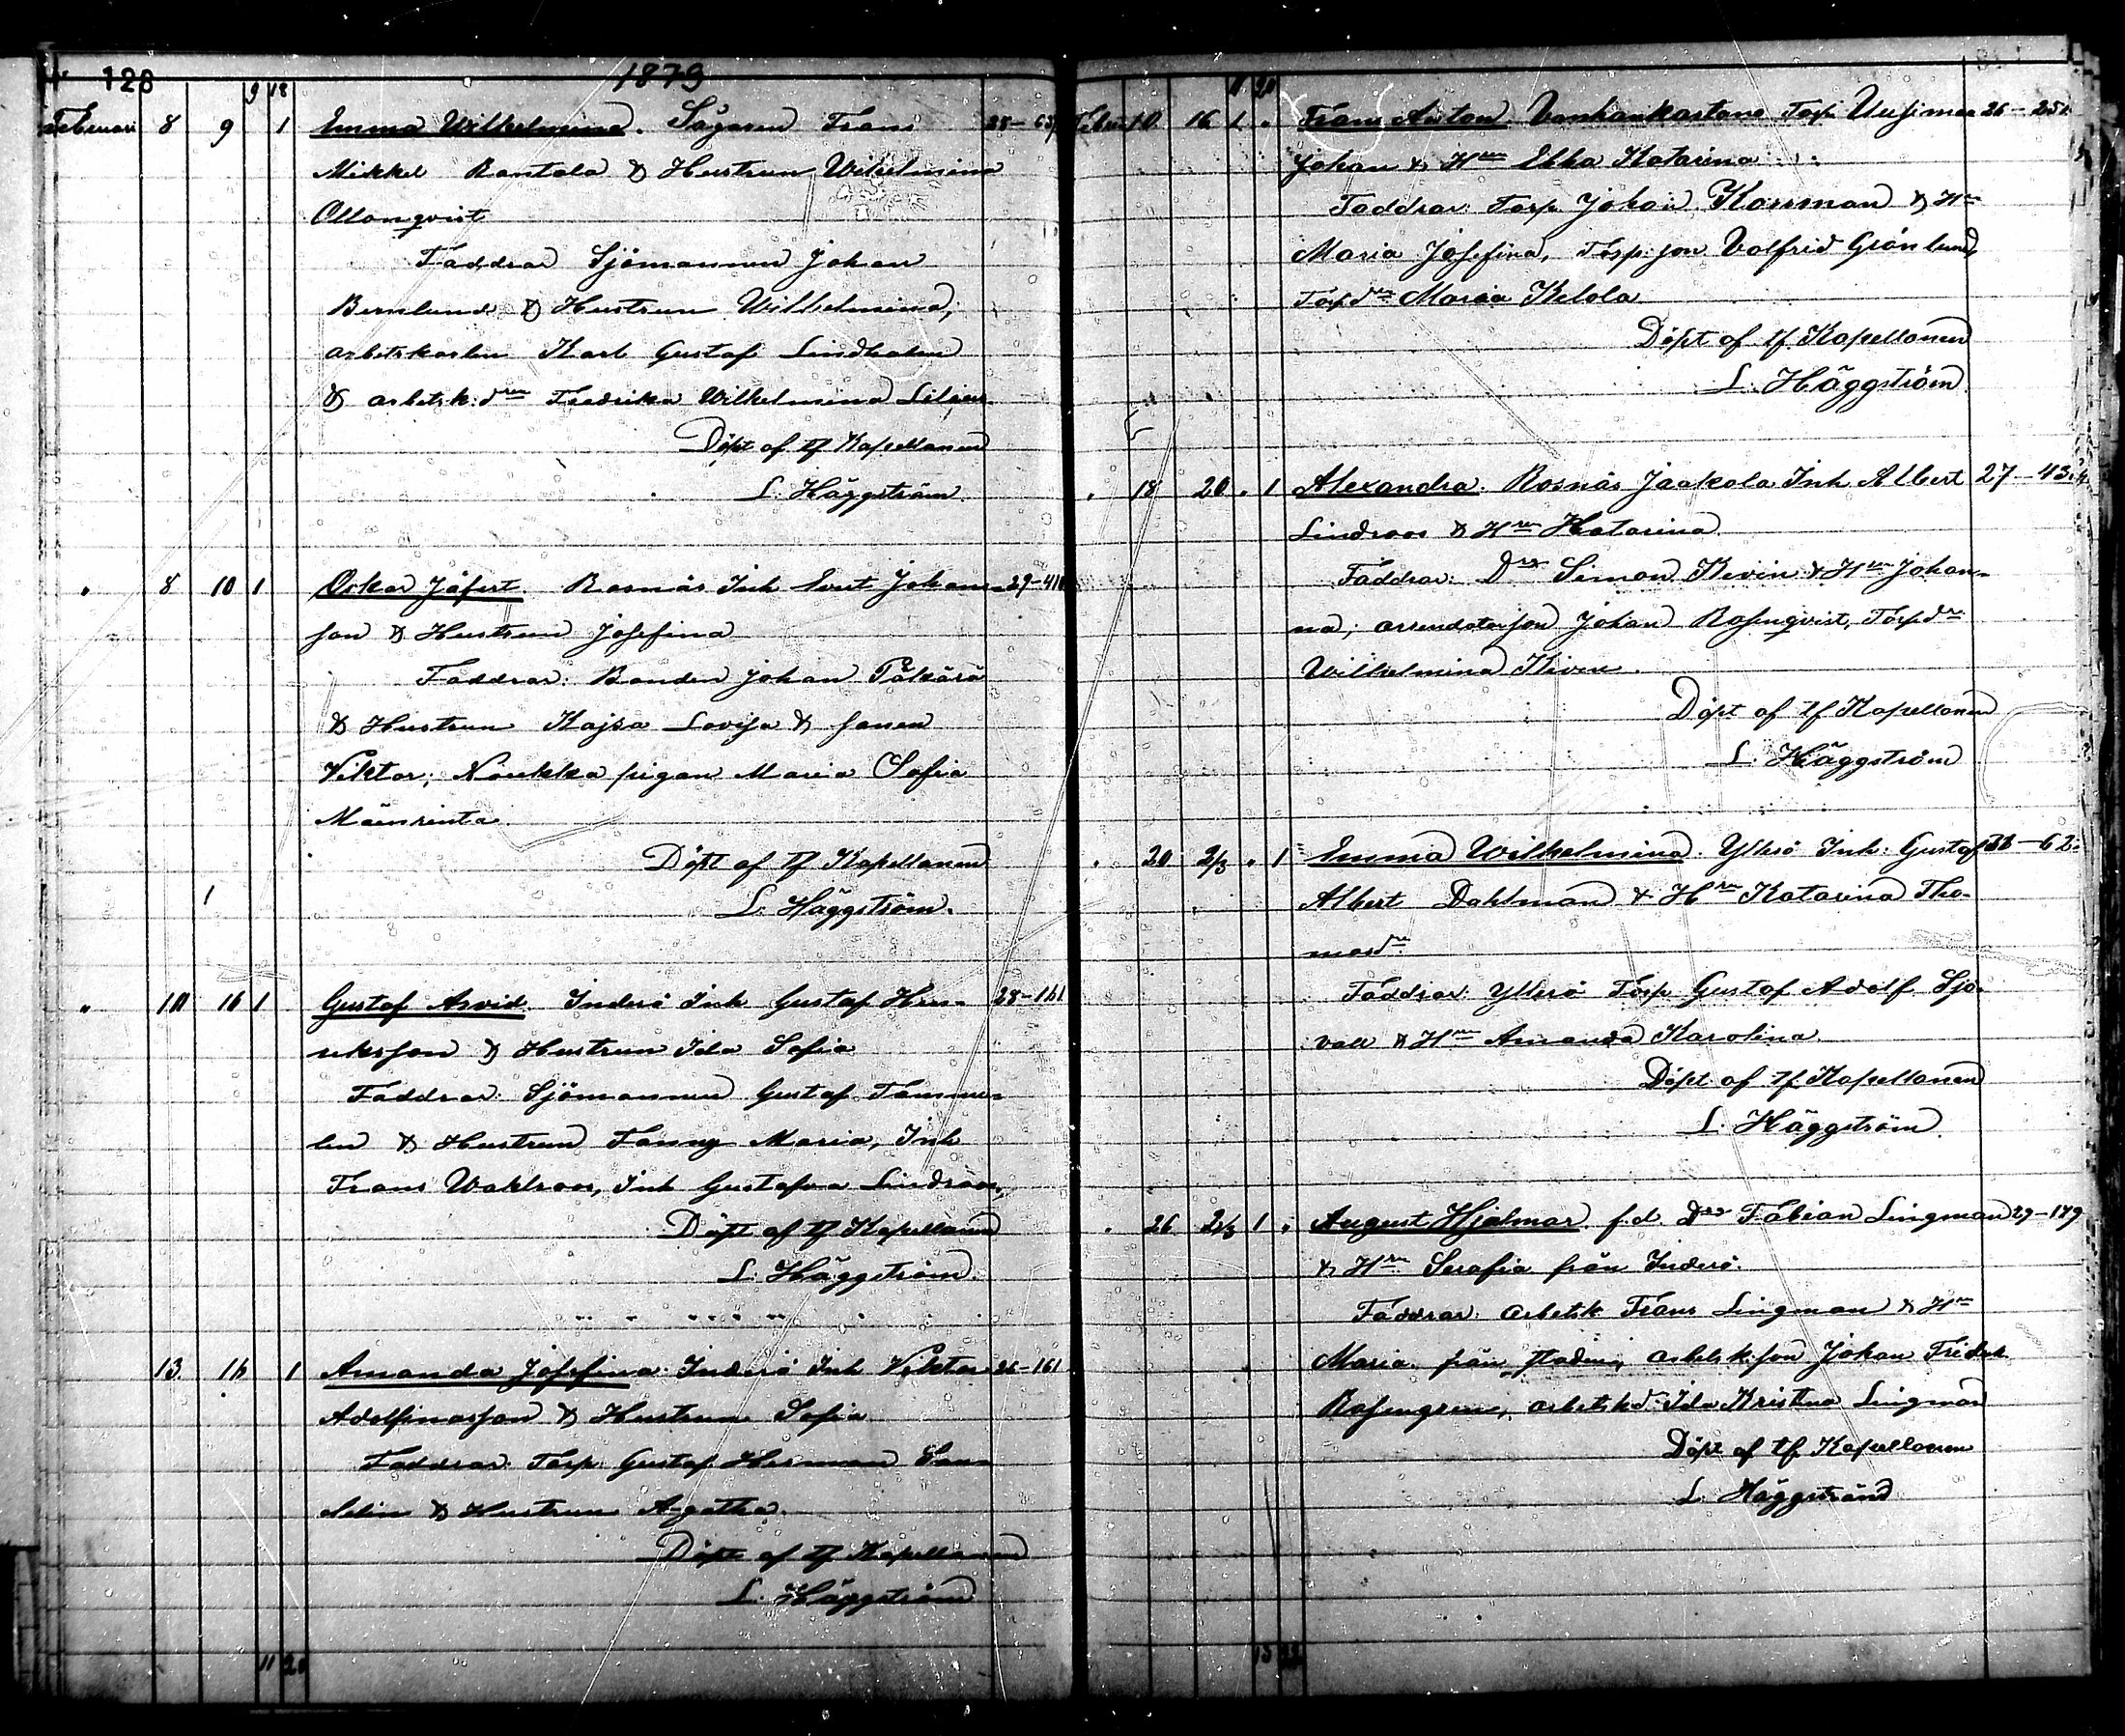 128
1879
9 18
Februari 8 9 1 Emma Wilhelmina. Sågaren Frans 28-63
Mikkel Rantala & Hustrun Wilhelmina
Ollonqvist
Faddrar Sjömannen Johan
Bernlund & Hustrun Wilhelmina,
arbetskarlen Karl Gustaf Lindholm
& arbetsk:drn Fredrika Wilhelmina Lilius
Döpt af tf Kapellanen
L. Häggström
" 8 10 1 Oskar Jafert. Rosnäs Inh Evert Johans- 29-410
son & Hustrun Josefina
Faddrar: Bonden Johan Päkärä
& Hustrun Kajsa Lovisa & sonen
Viktor; Noukka pigan Maria Sofia
Mäenrinta.
Döpt af tf Kapellanen
L. Häggström.
" 10 16 1 Gustaf Arvid. Inderö Inh Gustaf Hen- 28-161
riksson & Hustrun Ida Sofia
Faddrar: Sjömannen Gustaf Tamme-
lin & Hustrun Fanny Maria, Inh
Frans Wahlroos, Inh Gustafva Lindroos,
Döpt af tf Kapellanen
L. Häggström.
13. 16 1 Amanda Josefina. Inderö Inh Viktor 26-161
Adolfinasson & Hustrun Sofia
Faddrar: Torp: Gustaf Herman
& Hustrun Agatha.
Döpt af tf Kapellanen
L. Häggström
11 20
11 20
Febru 10 16 1 " Frans Anton Vanhankartano Torp. Uusimaa 26-251
Johan & Hrun Ebba Katarina
Faddrar: Torp. Johan Korsman & Hn
Maria Josefina, Torp: son Volfrid Grönlund,
Torpdrn Maria Kelola
Döpt af tf Kapellanen
L. Häggström.
" 18 20 " 1 Alexandra. Rosnäs Jaakola Inh Albert 27-43
Lindroos & Hrn Katarina.
Faddrar: Drn Simon Kevin & Hrn Johan-
na; arrendatorson Johan Rosenqvist, Torpdrn
Wilhelmina Kiven.
Döpt af tf Kapellanen
L. Häggström
" 20 2/3 " 1 Emma Wilhelmina. Ylterö Inh: Gustaf 28-62
Albert Dahlman & Hrn Katarina Tho-
masdr
Faddrar: Ylterö Torp. Gustaf Adolf Sjö-
vall & Hrn Amanda Karolina.
Döpt af tf Kapellanen
L. Häggström.
" 26 2/3 1 " August Hjalmar. f.d. Drn Fabian Lingman 29-179
& Hrn Serafia från Inderö.
Faddrar: arbetsk. Frans Lingman & Hn
Maria från staden, arbetsk:son Johan Fridrik
Rosengren, arbetskd: Ida Kristina Lingman
Döpt af tf Kapellanen
L. Häggström
13 22